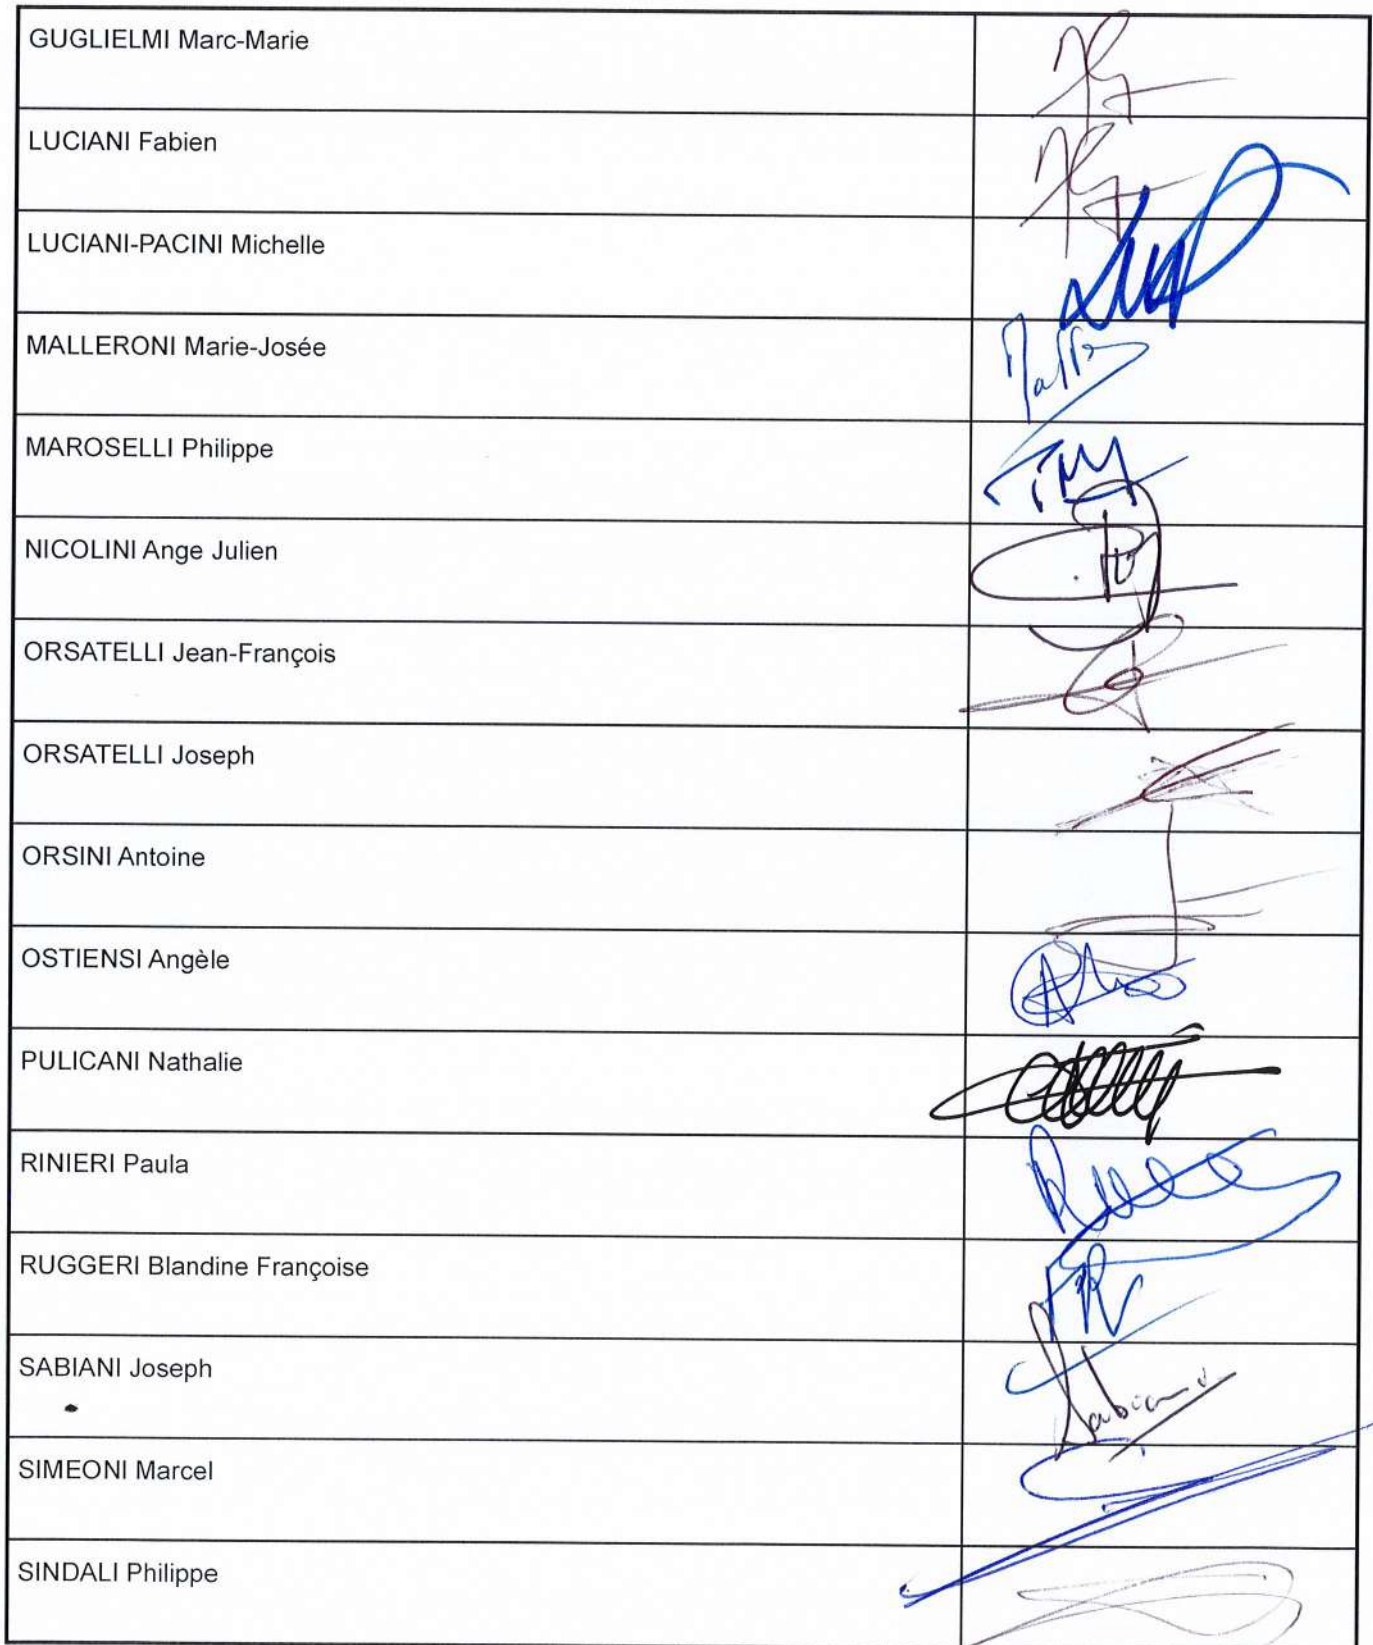 GUGLIELMI Marc-Marie
LUCIANI Fabien
LUCIANI-PACINI Michelle
MALLERONI Marie-Josée
MAROSELLI Philippe
NICOLINI Ange Julien
ORSATELLI Jean-François
ORSATELLI Joseph
ORSINI Antoine
OSTIENSI Angèle
PULICANI Nathalie
RINIERI Paula
RUGGERI Blandine Françoise
SABIANI Joseph
SIMEONI Marcel
SINDALI Philippe